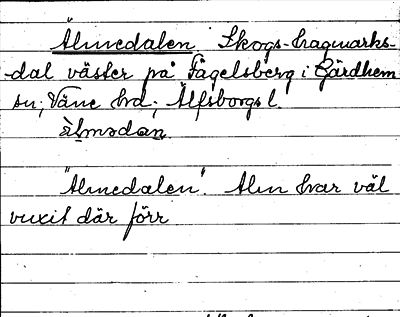 Älmedalen. Skogs-hagmarks-
-dal väster på Fågelsberg i Gärdhem
sn; Väne hd; Älfsborgs l.
älmədan
"Älmedalen". Alm har väl
vuxit där förr